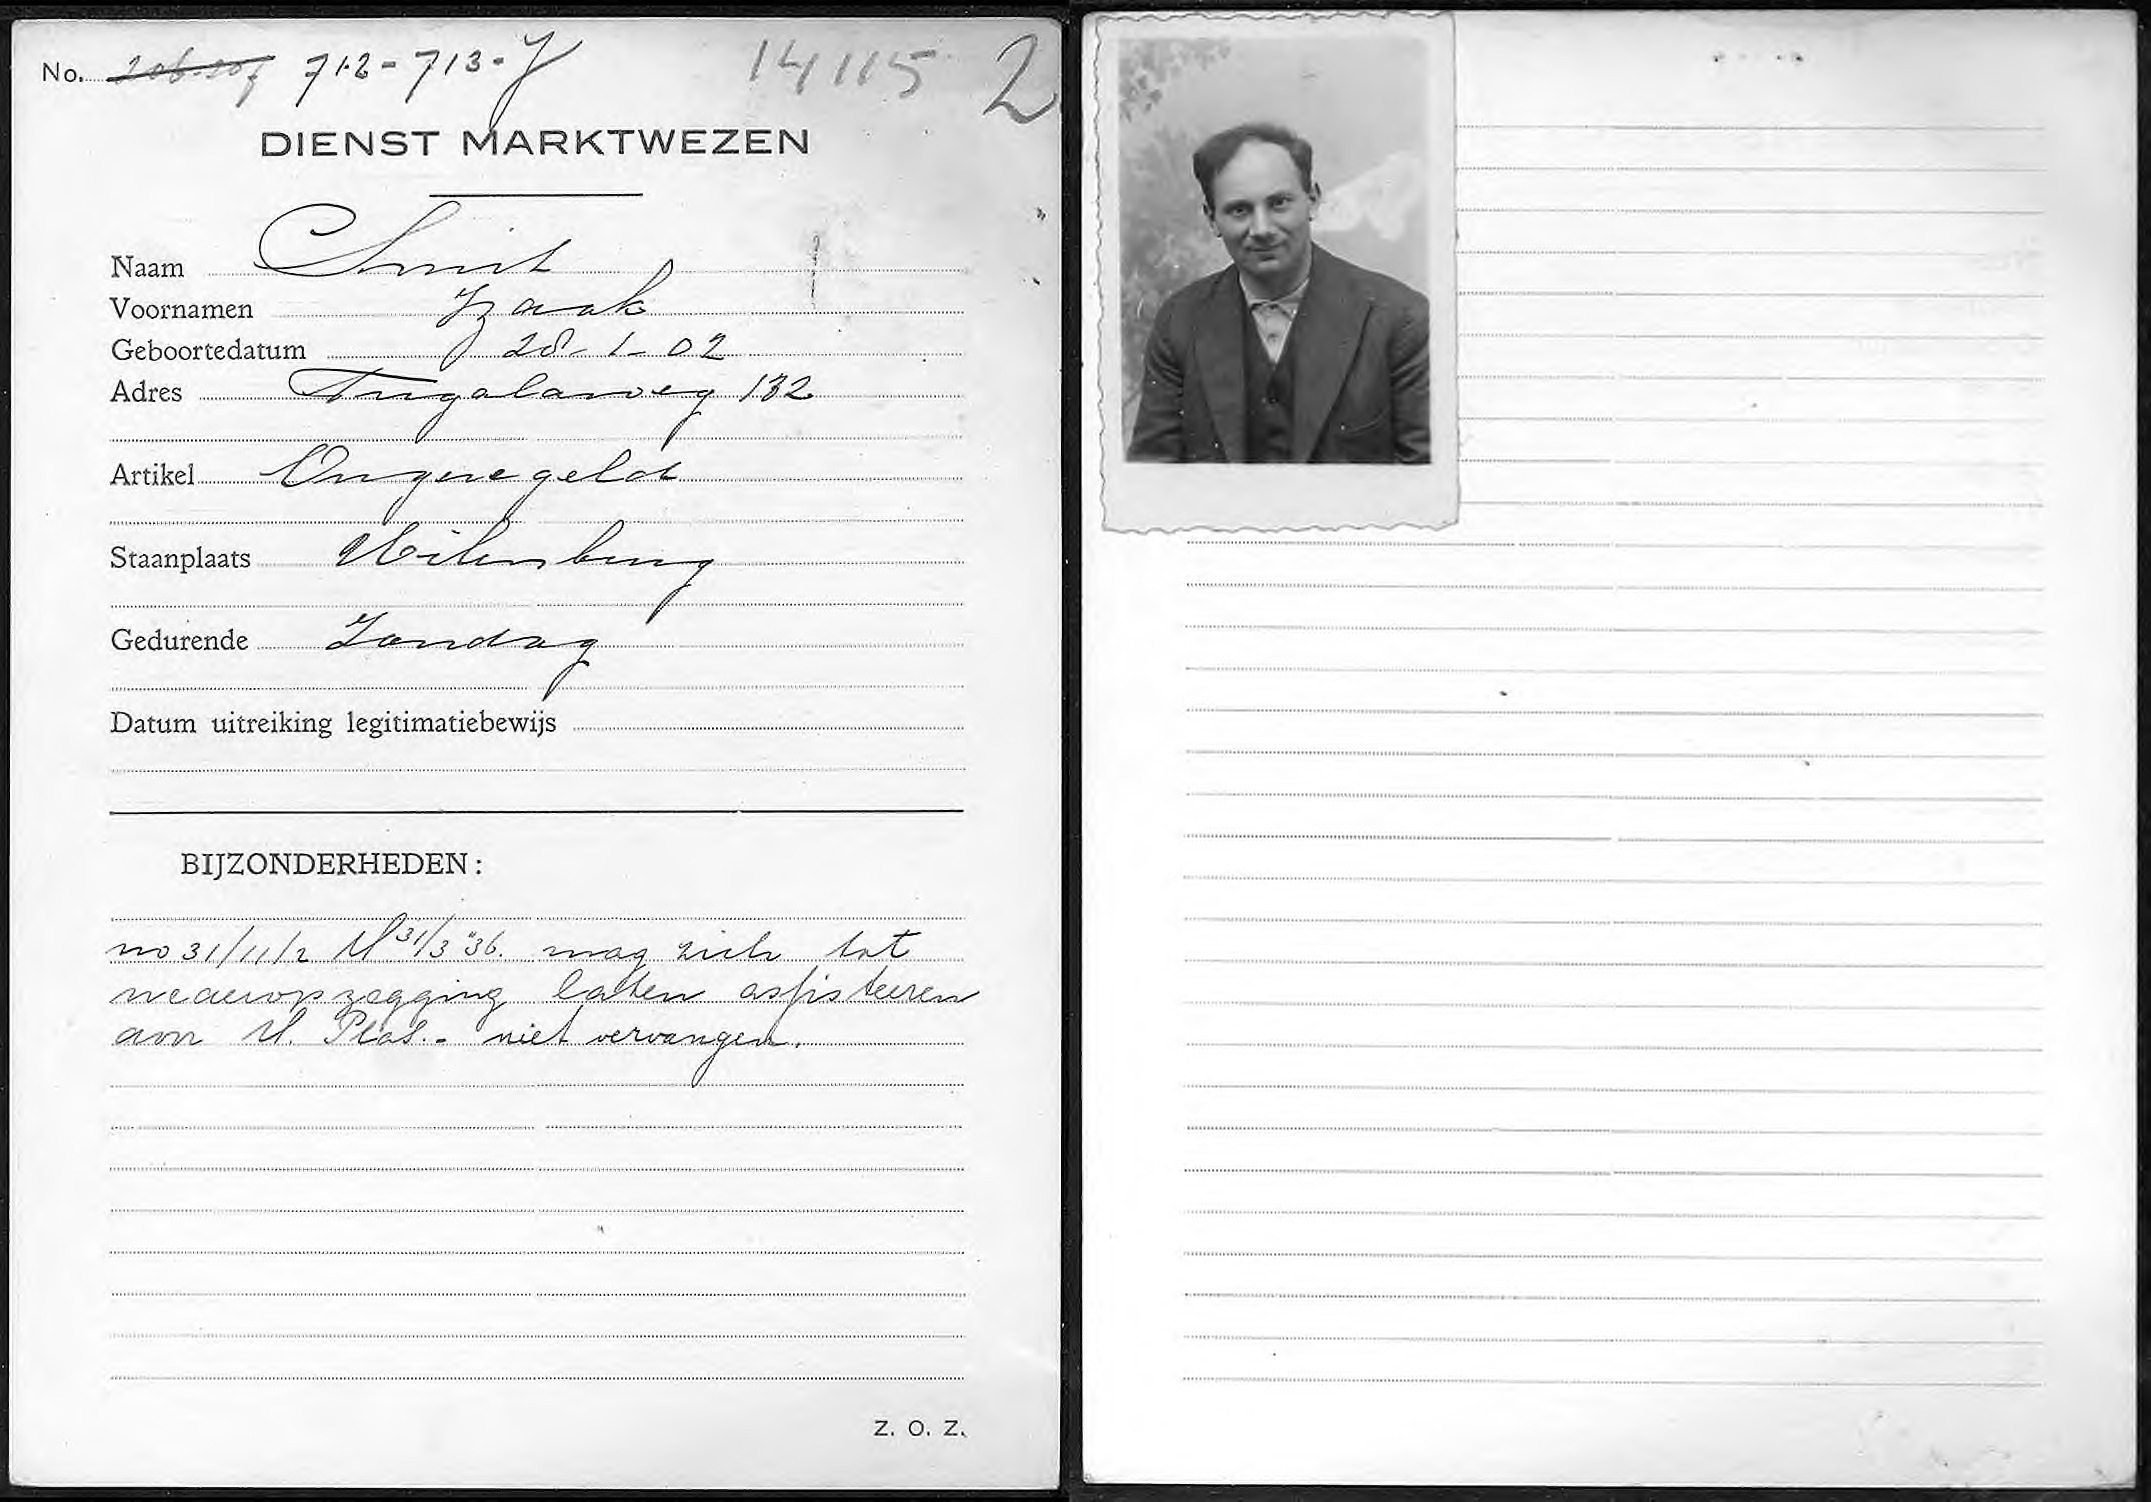 No. 206-207 712-713-J 14115 2
DIENST MARKTWEZEN
Naam Smit
Voornamen Izaak
Geboortedatum 28-1-02
Adres Tugelaweg 132
Artikel Ongeregeld
Staanplaats Uilenburg
Gedurende Zondag
Datum uitreiking legitimatiebewijs
BIJZONDERHEDEN:
no 31/11/2 M 31/3 '36. mag zich tot
wederopzegging laten assisteeren
door M. Plas. - niet vervangen.
Z. O. Z.